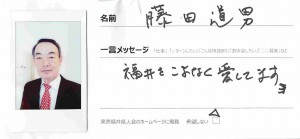 名前 藤田道男
一言メッセージ
福井をこよなく愛してます
東京福井県人会のホームページに掲載 希望しない